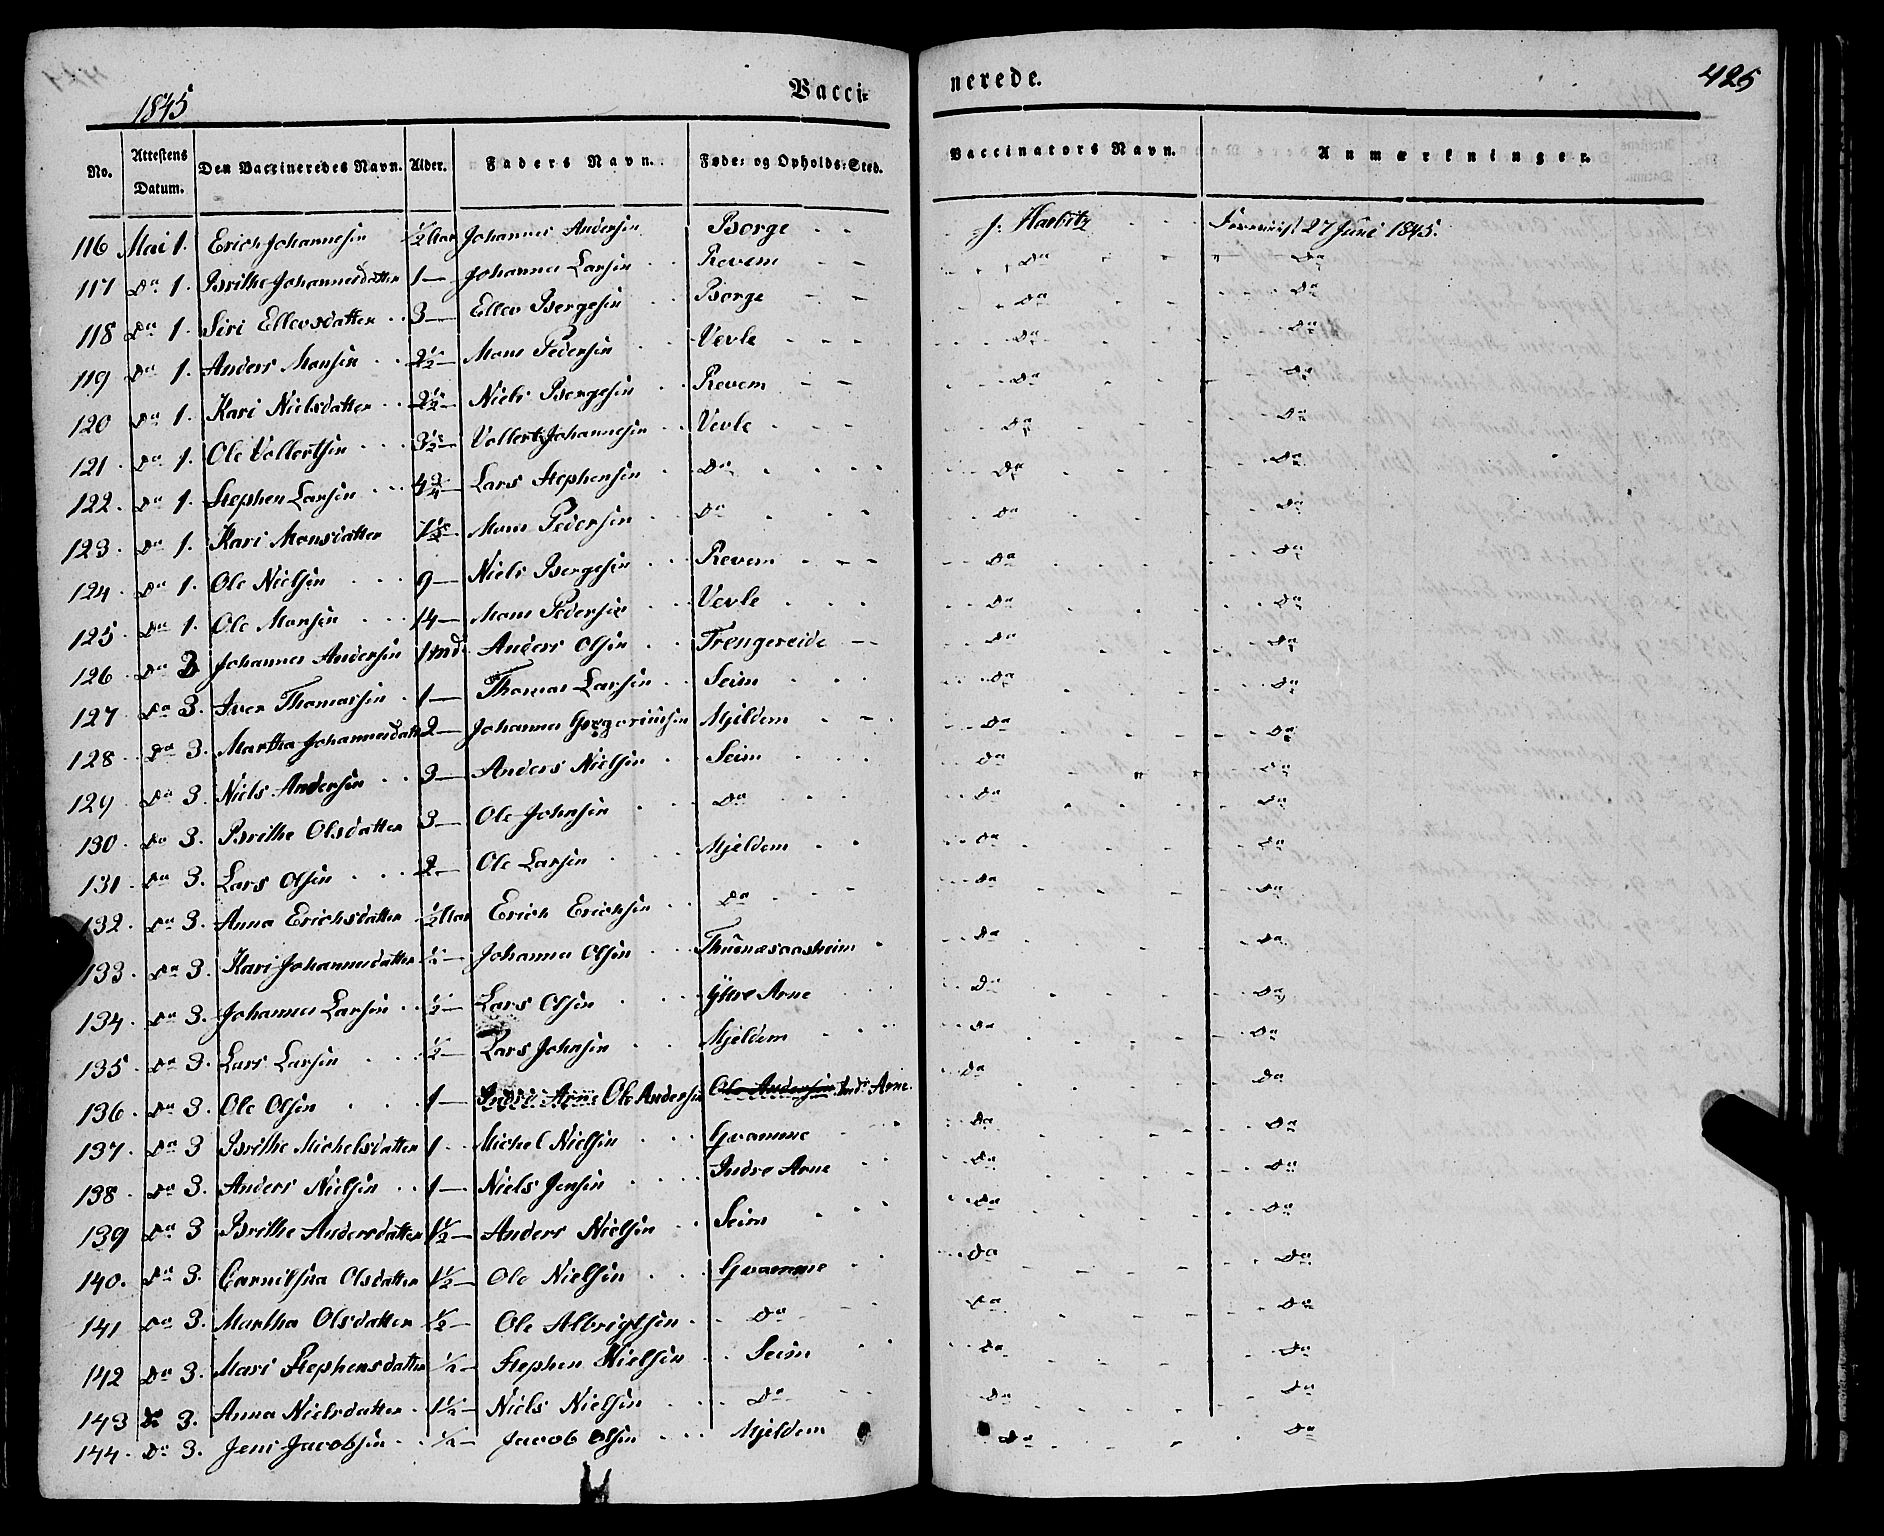 1845 Vacci= nerede. 425
No. Attestens Datum. Den Vaccineredes Navn. Alder. Faders Navn. Føde= og Opholds=Sted. Vaccinators Navn. Anmærkninger.
116 Mai 1. Erich Johannesen 1/2 Aar Johannes Andersen Borge J. Harbitz 27 Juni 1845.
117 Do 1. Brithe Johannesdatter 1 — Johannes Larsen Revem Do Do
118 Do 1. Siri Ellevsdatter 3 — Ellev Børgesen Borge Do Do
119 Do 1. Anders Monsen 2 1/2 — Mons Pedersen Vevle Do Do
120 Do 1. Kari Nielsdatter 2 1/2 — Niels Børgesen Revem Do Do
121 Do 1. Ole Vollertsen 3 1/2 — Vollert Johannesen Vevle Do Do
122. Do 1. Stephen Larsen 4 3/4 — Lars Stephensen Do Do Do
123. Do 1. Kari Monsdatter 7 1/2 — Mons Pedersen Do Do Do
124. Do 1. Ole Nielsen 9 — Niels Børgesen Revem Do Do
125 Do 1. Ole Monsen 14 — Mons Pedersen Vevle Do Do
126 Do 3 Johannes Andersen 1 md. Anders Olsen Trengereide Do Do
127 Do 3. Iver Thomassen 1 — Thomas Larsen Seim Do Do
128 Do 3. Martha Johannesdatt 2 — Johannes Gregoriusen Mjeldem Do Do
129 Do 3. Niels Andersen 3 — Anders Nielsen Seim Do Do
130 Do 3. Brithe Olsdatter 3 — Ole Johnsen Do Do Do
131 Do 3. Lars Olsen 2 — Ole Larsen Mjeldem Do Do
132 Do 3. Anna Erichsdatter 1/2 Aar Erich Erichsen Do Do Do
133 Do 3. Kari Johannesdatter 1/2 — Johannes Olsen Do Do
134 Do 3. Johannes Larsen 1/2 — Lars Olsen Yttre Arne Do Do
135 Do 3. Lars Larsen 1/2 — Lars Johnsen Mjeldem Do Do
136 Do 3. Ole Olsen 1 — Indre Arne Ole Andersen Ole Andersen Ind: Arne. Do Do
137. Do 3 Brithe Michelsdatter 1 Michel Nielsen Gvamme Do Do
138 Do 3. Anders Nielsen 1 — Niels Jensen Indre Arne Do Do
139 Do 3 Brithe Andersdatter 1 1/2 — Anders Nielsen Seim Do Do
140. Do 3. Olsdatter 1 1/2 — Ole Nielsen Gvamme Do Do
141 Do 3. Martha Olsdatter 1/2 — Ole Albrigtsen Do Do Do
142 Do 3. Mari Stephensdatter 1/2 — Stephen Nielsen Seim Do Do
143 Do 3. Anna Nielsdatter 1 1/2 — Niels Nielsen Do Do Do
144. Do 3. Jens Jacobsen 1/2 — Jacob Olsen Mjeldem Do Do